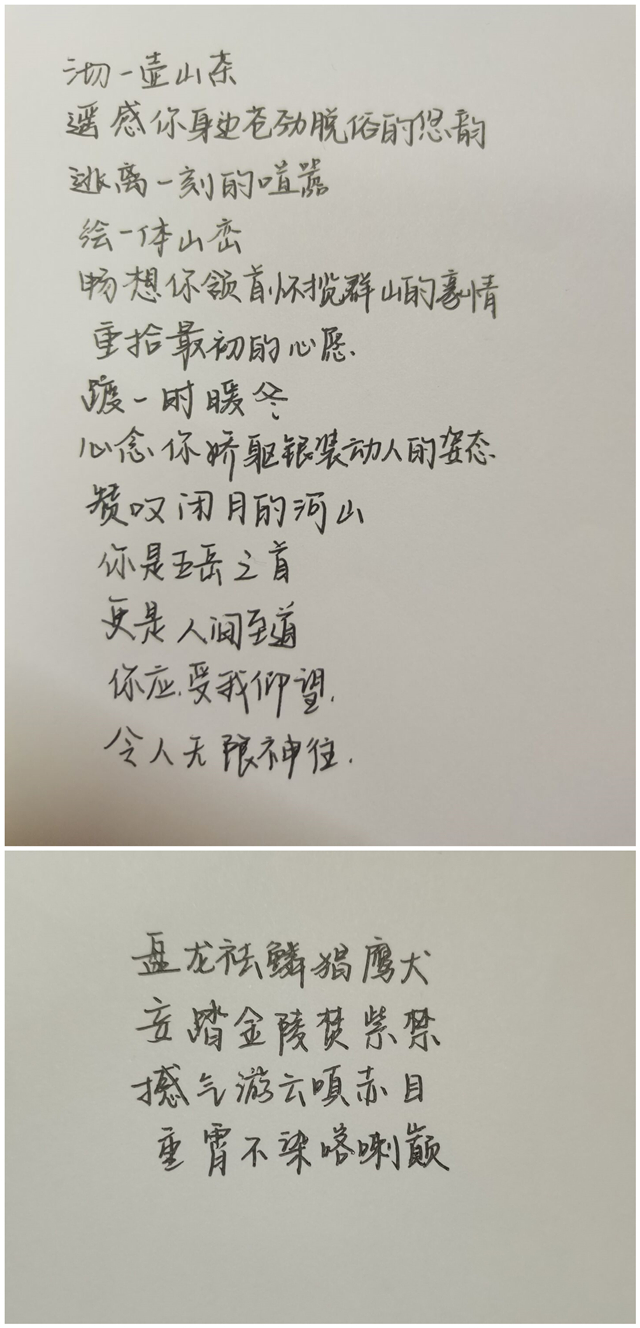 沏一壶山茶
遥感你身边苍劲脱俗的悠韵
逃离一刻的喧嚣
绘一体山峦
畅想你领首怀揽群山的豪情
重拾最初的心愿.
踱一时暖冬
心念你娇躯银装动人的姿态
赞叹闭月的河山
你是五岳之首
更是人间至道
你应受我仰望.
令人无限神往.
盘龙祛鳞猖鹰犬
妄踏金陵焚紫禁
撼气游云嗔赤目
重霄不染喀喇巅